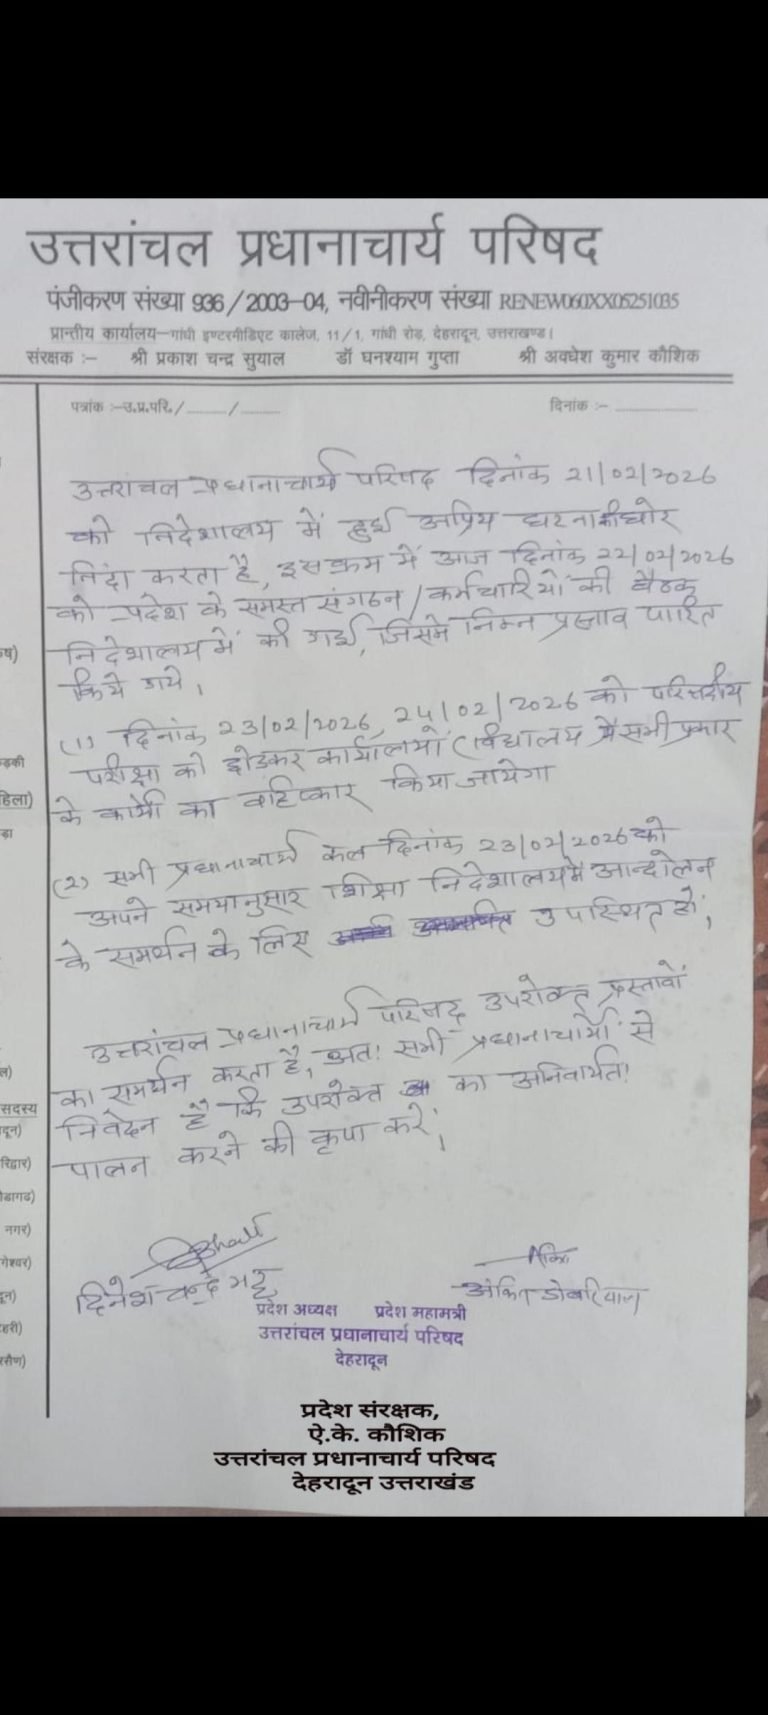 उत्तरांचल प्रधानाचार्य परिषद
पंजीकरण संख्या 936/2003-04, नवीनीकरण संख्या RENEW060XX05251035
प्रान्तीय कार्यालय-गांधी इण्टरमीडिएट कालेज, 11/1, गांधी रोड, देहरादून, उत्तराखण्ड।
संरक्षक :- श्री प्रकाश चन्द्र सुयाल डॉ घनश्याम गुप्ता श्री अवधेश कुमार कौशिक
पत्रांक :-उ.प्र.परि./......../........ दिनांक :- ................
उत्तरांचल प्रधानाचार्य परिषद दिनांक 21/02/2026
को निदेशालय में हुई अप्रिय घटना की घोर
निंदा करता है, इस क्रम में आज दिनांक 22/02/2026
को प्रदेश के समस्त संगठन/कर्मचारियों की बैठक
निदेशालय में की गई, जिसमें निम्न प्रस्ताव पारित
किये गये।
(1) दिनांक 23/02/2026, 24/02/2026 को परिषदीय
परीक्षा को छोडकर कार्यालयों/विद्यालय में सभी प्रकार
के कार्यो का वहिष्कार किया जायेगा
(2) सभी प्रधानाचार्य कल दिनांक 23/02/2026 को
अपने समयानुसार शिक्षा निदेशालय में आन्दोलन
के समर्थन के लिए उपस्थित हों,
उत्तरांचल प्रधानाचार्य परिषद उपरोक्त प्रस्तावों
का समर्थन करता है, अतः सभी प्रधानाचार्यो से
निवेदन है कि उपरोक्त का अनिवार्यतः
पालन करने की कृपा करें,
Bhatt
दिनेश चन्द्र भट्ट अंकित डोबरियाल
प्रदेश अध्यक्ष प्रदेश महामत्री
उत्तरांचल प्रधानाचार्य परिषद
देहरादून
प्रदेश संरक्षक,
ऐ.के. कौशिक
उत्तरांचल प्रधानाचार्य परिषद
देहरादून उत्तराखंड
हिला)
सदस्य
दून)
नगर)